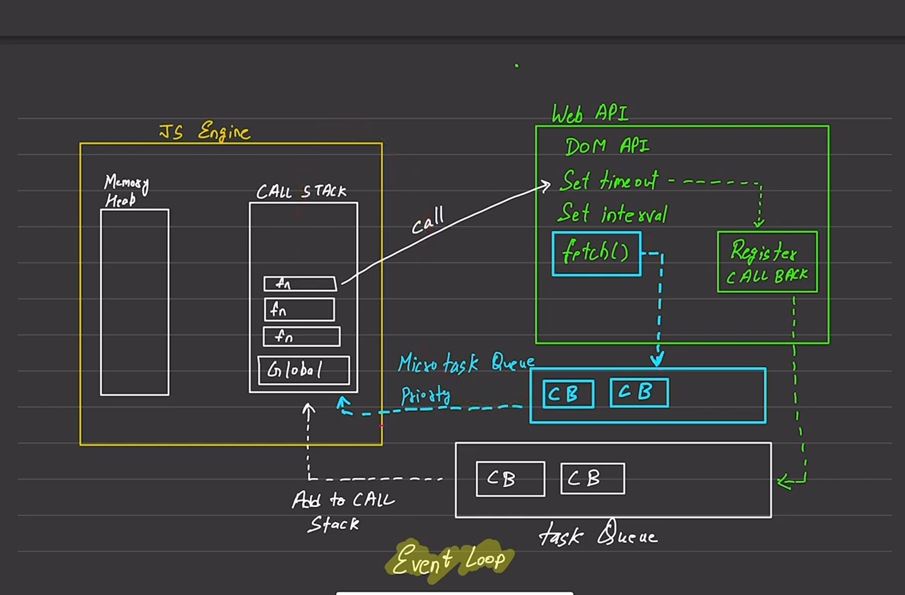 JS Engine
Memory
Heap
CALL STACK
fn
fn
fn
Global
call
Web API
DOM API
Set timeout
Set interval
fetch()
Register
CALL BACK
Microtask Queue
Priority
CB CB
CB CB
Add to CALL
Stack
task Queue
Event Loop